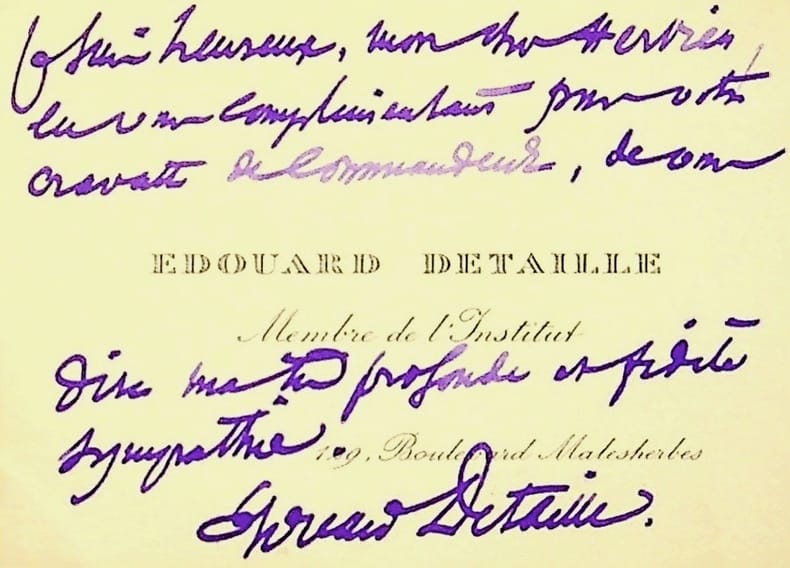 Je suis heureux, mon cher Hervieu,
en vous complimentant pour votre
cravate de Commandeur, de vous
EDOUARD DETAILLE
Membre de l'Institut
dire ma très profonde et fidèle
sympathie.
129, Boulevard Malesherbes
Edouard Detaille.